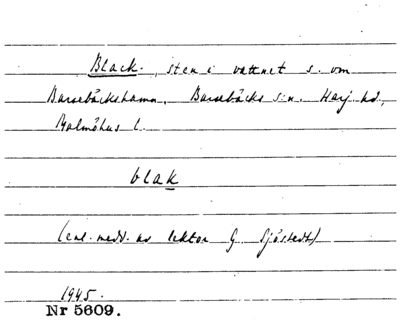 Black, sten i vattnet s. om
Barsebäckshamn. Barsebäcks sn. Harj. hd.,
Malmöhus l.
blak
(enl. medd. av lektor G Sjöstedt)
1945.
Nr 5609.